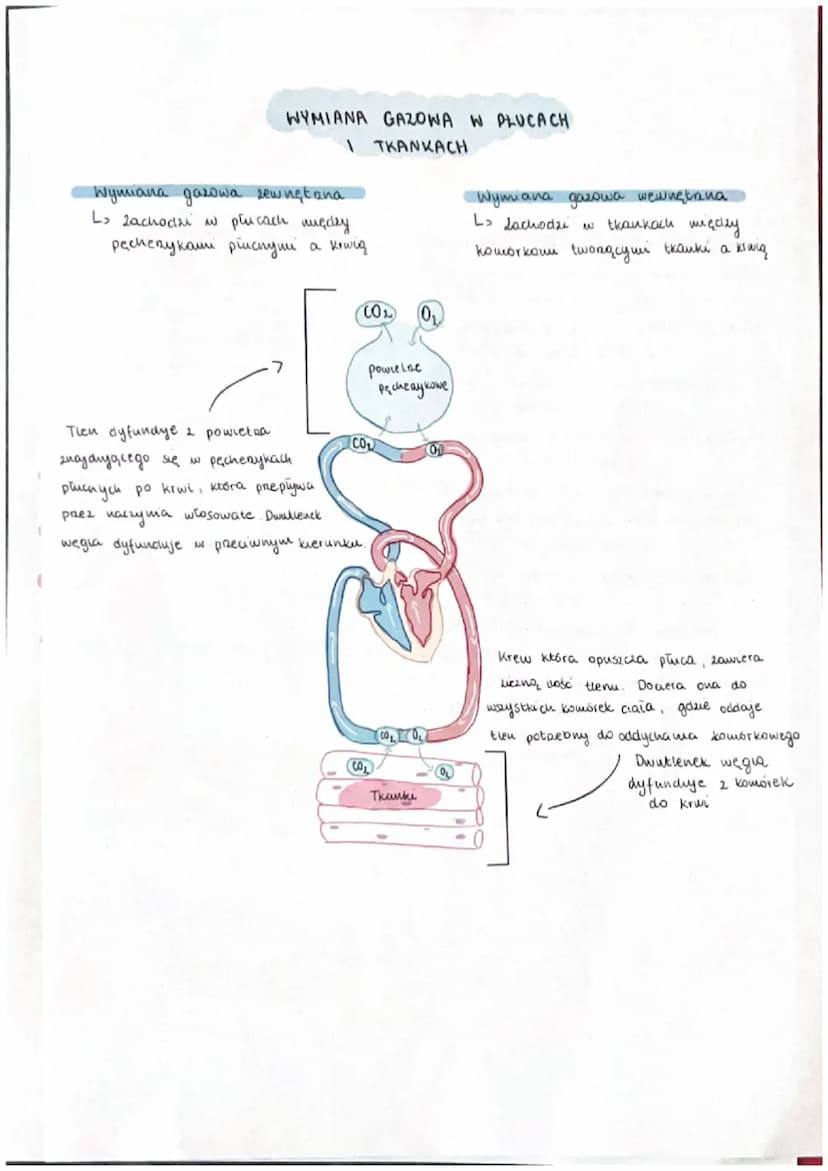 WYMIANA GAZOWA W PŁUCACH
I TKANKACH
Wymiana gazowa zewnętrzna
↳ Zachodzi w płucach między
pęcherzykami płucnymi a krwią
Wymiana gazowa wewnętrzna
↳ Zachodzi w tkankach między
komórkami tworzącymi tkanki a krwią
CO₂ O₂
powietrze
pęcherzykowe
CO₂ O₂
Tlen dyfunduje z powietrza
znajdującego się w pęcherzykach
płucnych po krwi, która przepływa
przez naczynia włosowate. Dwutlenek
węgla dyfunduje w przeciwnym kierunku.
Krew która opuszcza płuca, zawiera
liczną ilość tlenu. Dociera ona do
wszystkich komórek ciała, gdzie oddaje
tlen potrzebny do oddychania komórkowego
Dwutlenek węgla
dyfunduje z komórek
do krwi
CO₂ O₂
CO₂ O₂
Tkanki